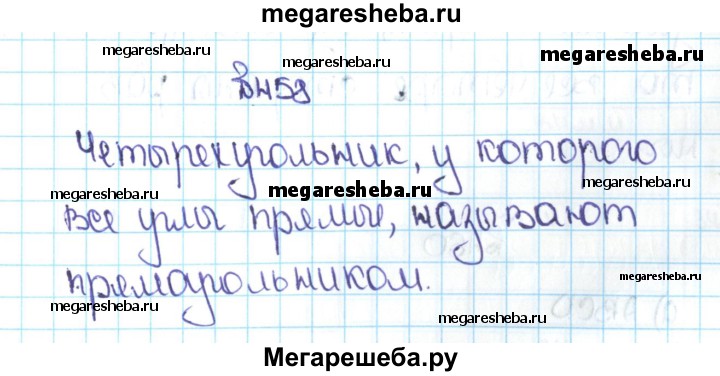 megaresheba.ru
megaresheba.ru megaresheba.ru
№ 458 megaresheba.ru
Четырехугольник, у которого
megaresheba.ru megaresheba.ru megaresheba.ru
все углы прямые, называют
прямоугольником. megaresheba.ru
megaresheba.ru megaresheba.ru
Мегарешеба.ру